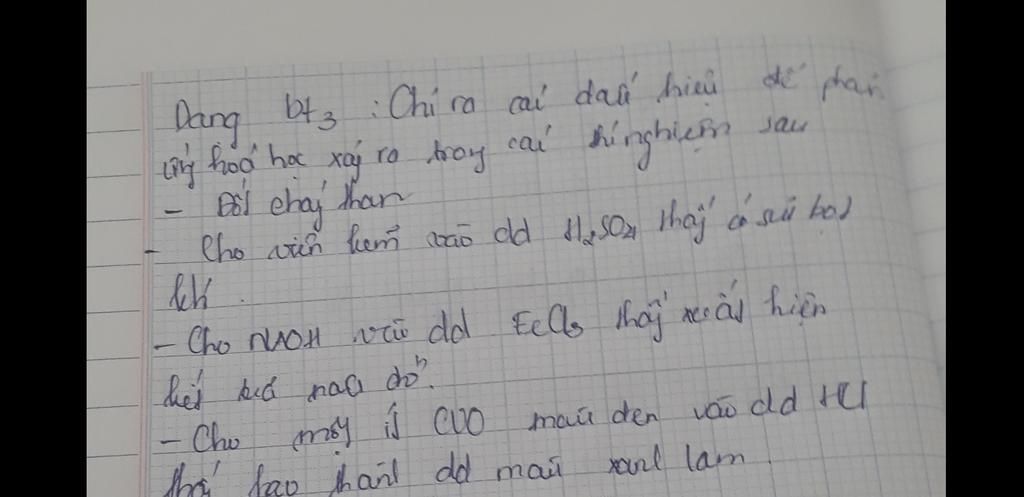 Dạng bt3 : Chỉ ra các dấu hiệu để phản
ứng hoá học xảy ra trong các thí nghiệm sau
- Đốt cháy than
- Cho viên kẽm vào dd H2SO4 thấy có sủi bọt
khí.
- Cho NaOH vào dd FeCl3 thấy xuất hiện
kết tủa nâu đỏ.
- Cho một ít CuO màu đen vào dd HCl
thấy tạo thành dd màu xanh lam